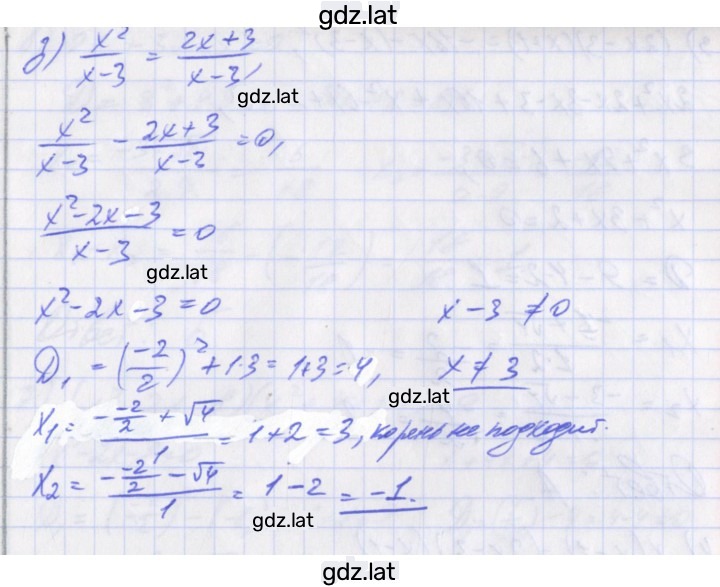 gdz.lat
з) x²/(x-3) = (2x+3)/(x-3),
gdz.lat
x²/(x-3) - (2x+3)/(x-3) = 0,
(x²-2x-3)/(x-3) = 0
gdz.lat
x²-2x-3=0 x-3≠0
D₁ = (-2/2)² + 1·3 = 1+3=4, x≠3
gdz.lat
x₁ = (- -2/2 + √4)/1 = 1+2=3, корень не подходит.
x₂ = (- -2/2 - √4)/1 = 1-2 = -1.
gdz.lat
gdz.lat